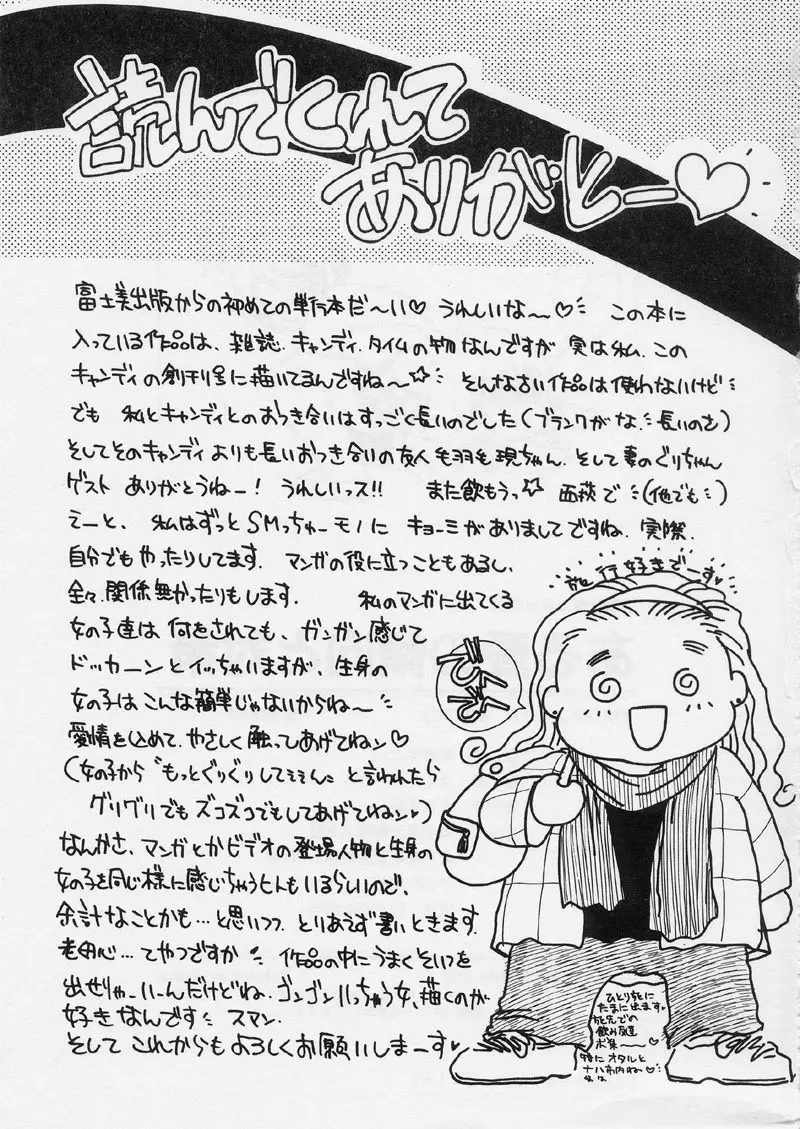 読んでくれて
ありがとー♡
富士美出版からの初めての単行本だ〜い♡ うれしいな〜♡ この本に
入っている作品は、雑誌.キャンディ.タイムの物なんですが 実は私、この
キャンディの創刊号に描いてるんですね〜☆ そんな古い作品は使わないけど
でも 私とキャンディとのおつき合いはすっごく長いのでした(ブランクがな.長いのさ)
そしてそのキャンディよりも長いおつき合いの友人 毛羽毛現ちゃん.そして妻のぐりちゃん
ゲスト ありがとうねー! うれしいっス!! また飲もうっ☆ 西荻で(他でも)
えーと、私はずっとSMっちゅーモノに キョーミがありましてですね.実際.
自分でもやったりしてます. マンガの役に立つこともあるし、
全々.関係無かったりもします. 私のマンガに出てくる
女の子達は 何をされても、ガンガン感じて
ドッカーンとイッちゃいますが、生身の
女の子はこんな簡単じゃないからね〜
愛情を込めて.やさしく触ってあげてねン♡
(女の子から〝もっとぐりぐりしてぇぇん〟と言われたら
グリグリでもズコズコでもしてあげてねン♥)
なんかさ、マンガとかビデオの登場人物と生身の
女の子を同じ様に感じちゃうヒトもいるらしいので、
余計なことかも…と思いつつ とりあえず書いときます.
老婆心…てやつですか 作品の中にうまくそいつを
出せりゃーいーんだけどね.ゴンゴンいっちゃう女、描くのが
好きなんです スマン.
そして これからも よろしくお願いしまーす♥
旅行好きでーす♥
ひとりたびに
たまに出ます♥
旅先での
飲み友達
ボ集〜♡
特にオタルと